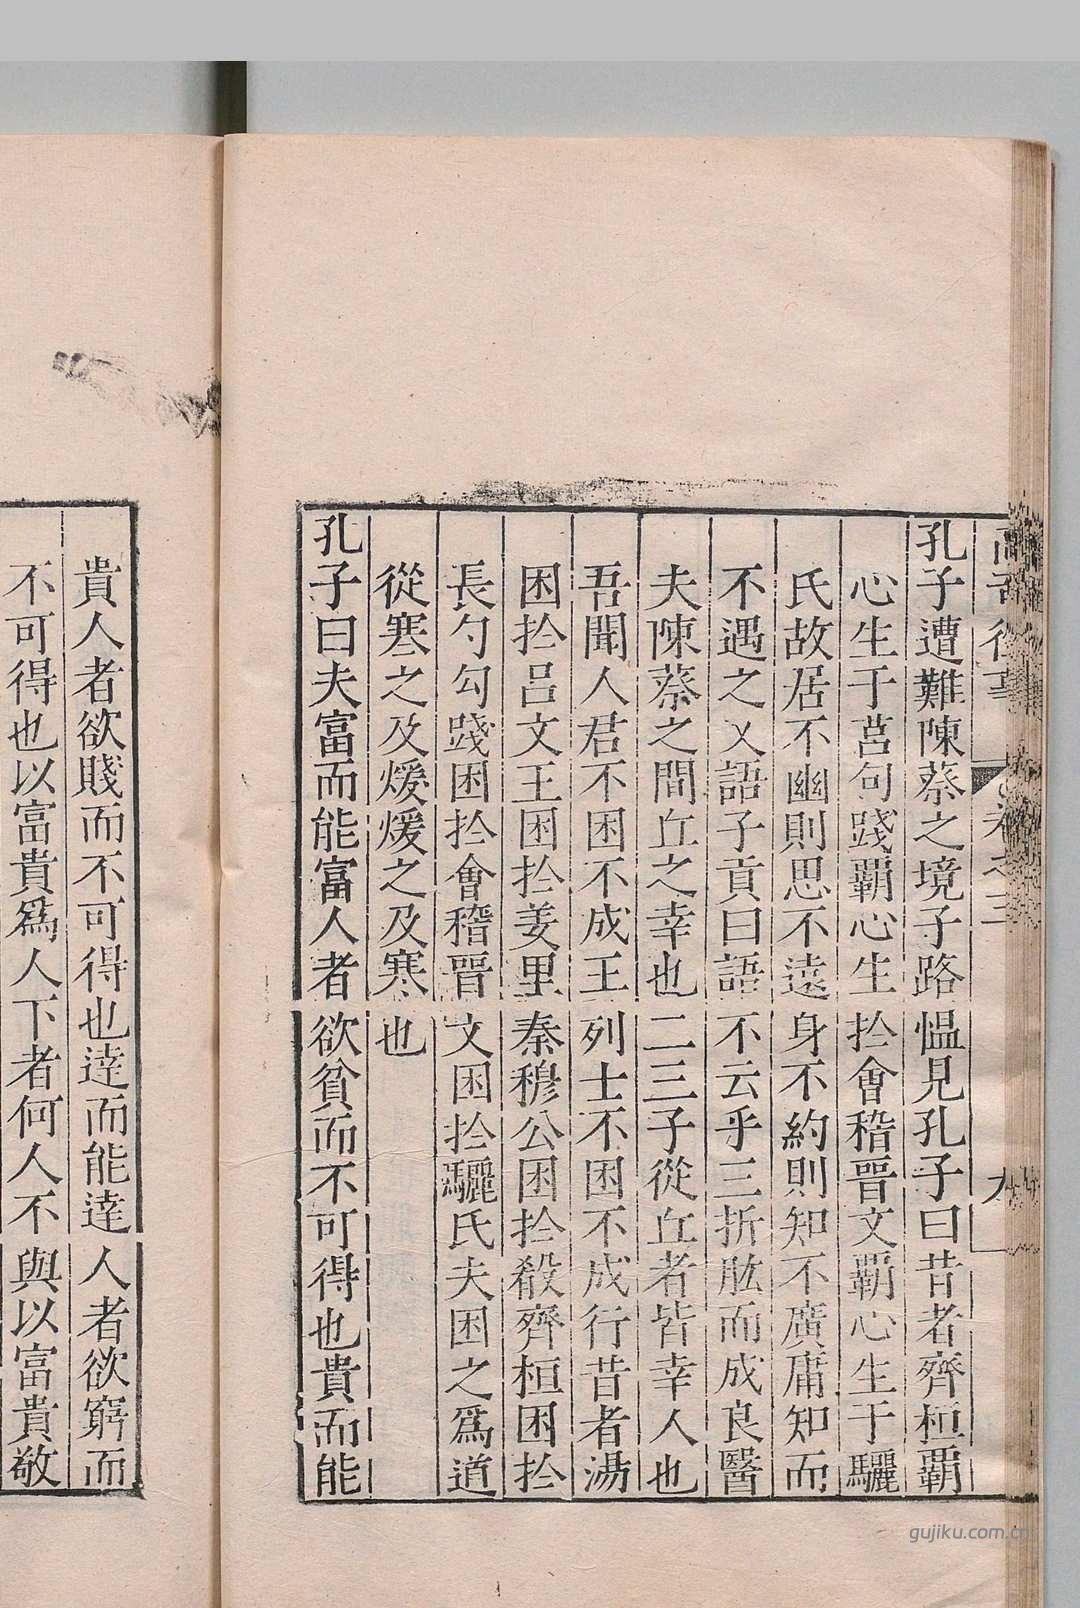 孔子遭難陳蔡之境子路慍見孔子曰昔者齊桓覇
心生于莒句踐覇心生扵會稽晉文覇心生于驪
氏故居不幽則思不遠身不約則知不廣庸知而
不遇之乂語子貢曰語不云乎三折肱而成良醫
夫陳蔡之間丘之幸也二三子從丘者皆幸人也
吾聞人君不困不成王列士不困不成行昔者湯
困扵呂文王困扵羑里秦穆公困扵殽齊桓困扵
長勺勾踐困扵會稽晉文困扵驪氏夫困之爲道
從寒之及煖煖之及寒也
孔子曰夫富而能富人者欲貧而不可得也貴而能
貴人者欲賤而不可得也逹而能逹人者欲窮而
不可得也以富貴爲人下者何人不與以富貴敬
gujiku.com.cn